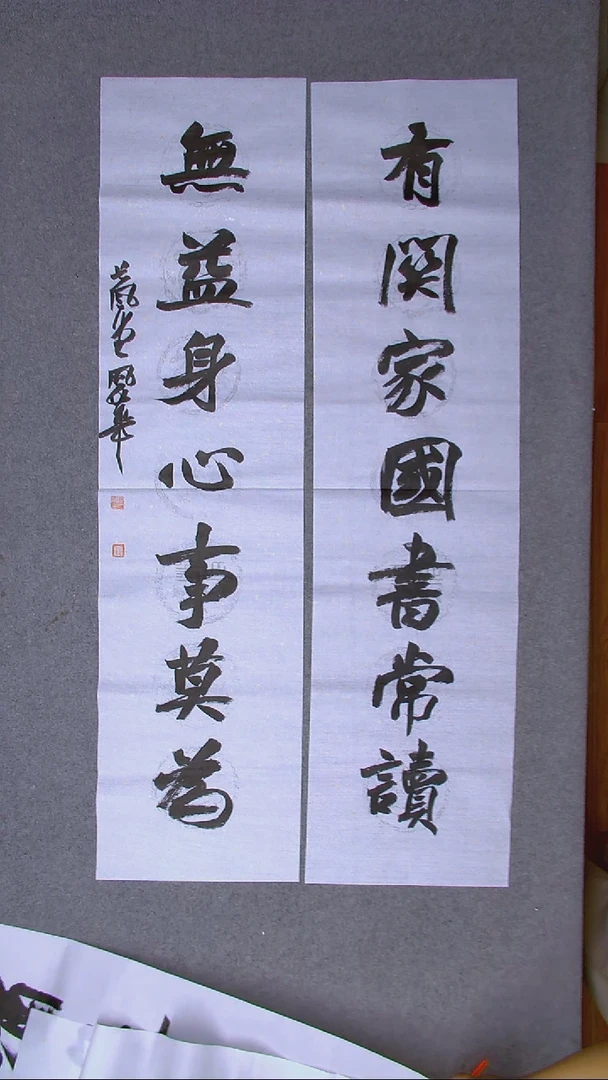 有関家國書常讀
無益身心事莫為